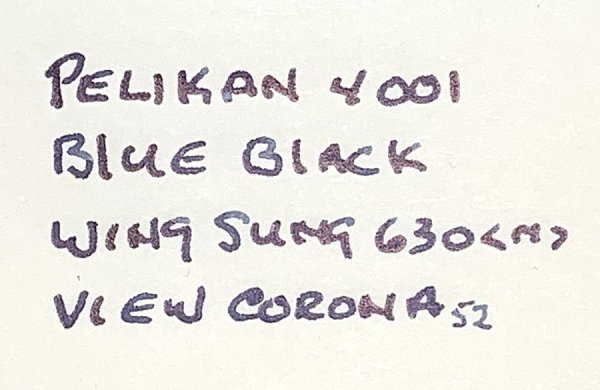 PELIKAN 4001
BLUE BLACK
WING SUNG 630<M>
VIEW CORONA 52